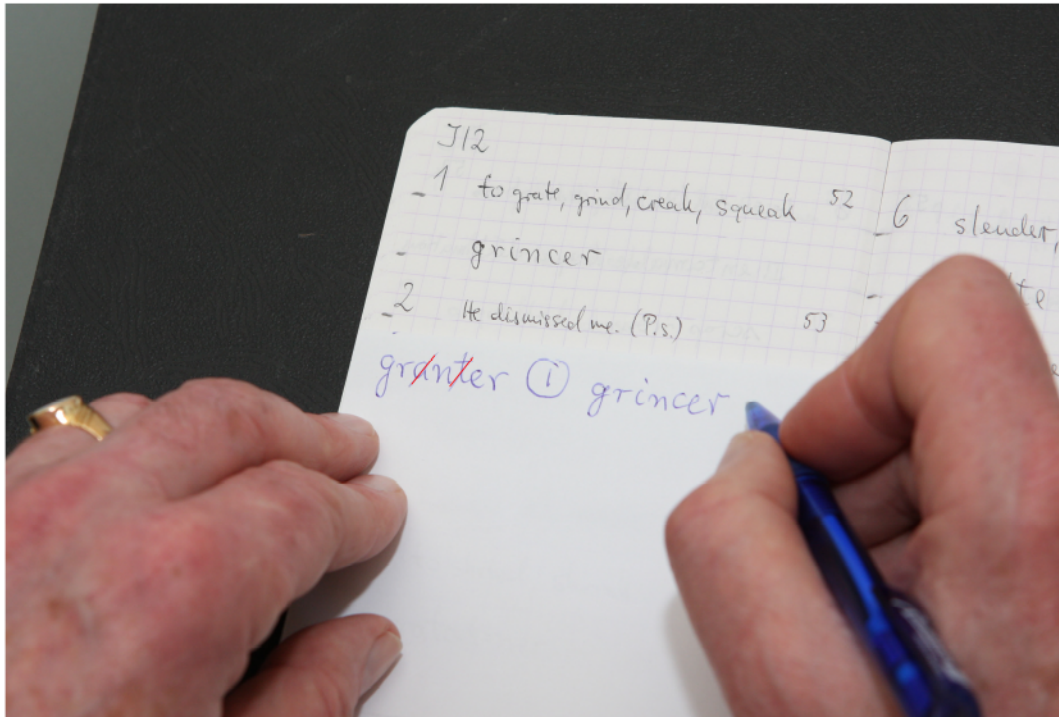 J12
1 to grate, grind, creak, squeak 52
grincer
2 He dismissed me. (P.s.) 53
granter i grincer
6 slender,
te